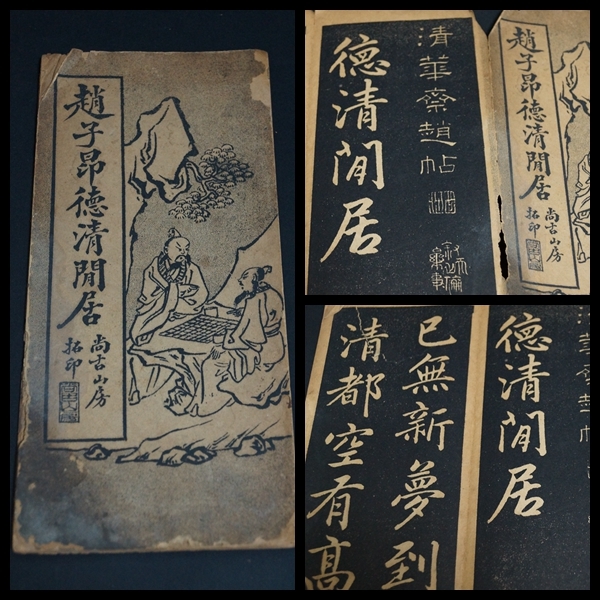 趙子昂德清閒居
尚古山房
拓印
清華齋趙帖
德清閒居
趙子昂德清閒居
尚古山房
拓印
德清閒居
已無新夢到
清都空有高